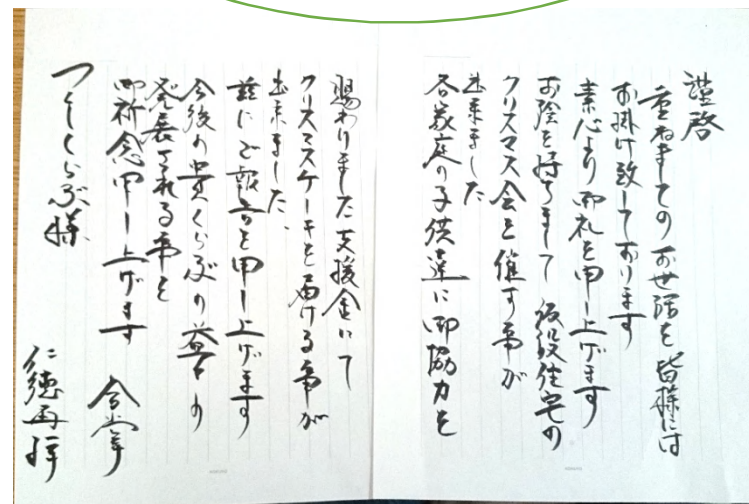 謹啓
重ねましての お世話を 皆様には
お掛け致しております
衷心より 御礼を申し上げます
お陰を持ちまして 仮設住宅の
クリスマス会を 催す事が
出来ました
各家庭の子供達に 御協力を
賜わりました 支援金にて
クリスマスケーキを 届ける事が
出来ました、
茲にご報告を申し上げます
今後の貴くらぶの益々の
発展される事を
御祈念申し上げます 合掌
つくしくらぶ様
仁徳再拝